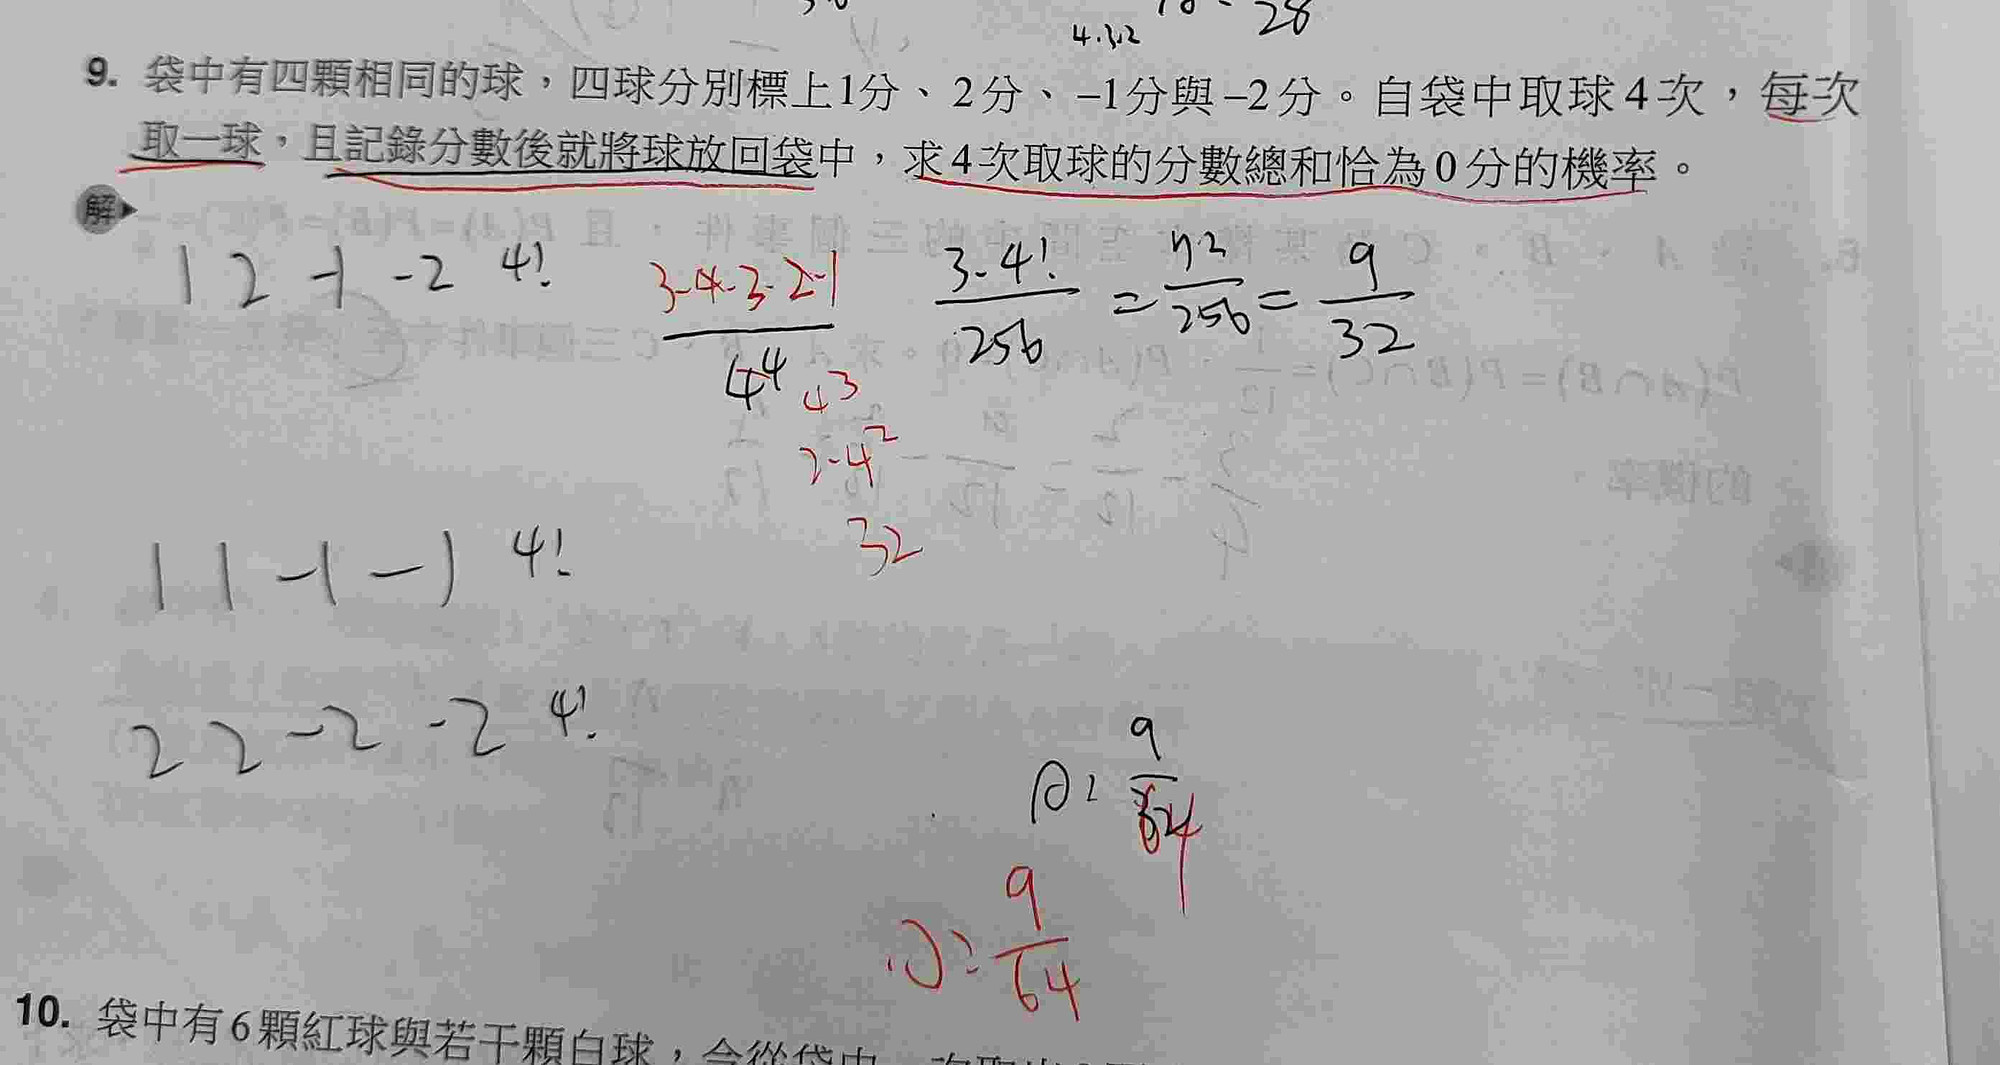 4.3.2
28
9. 袋中有四顆相同的球，四球分別標上1分、2分、–1分與–2分。自袋中取球4次，每次
取一球，且記錄分數後就將球放回袋中，求4次取球的分數總和恰為0分的機率。
解
1 2 -1 -2 4!
3-4-3-2-1
4^4
4^3
2-4^2
32
3-4! / 256 = 72 / 256 = 9 / 32
1 1 -1 -1 4!
2 2 -2 -2 4!
A: 9 / 64
A: 9 / 64
10. 袋中有6顆紅球與若干顆白球，今從袋中